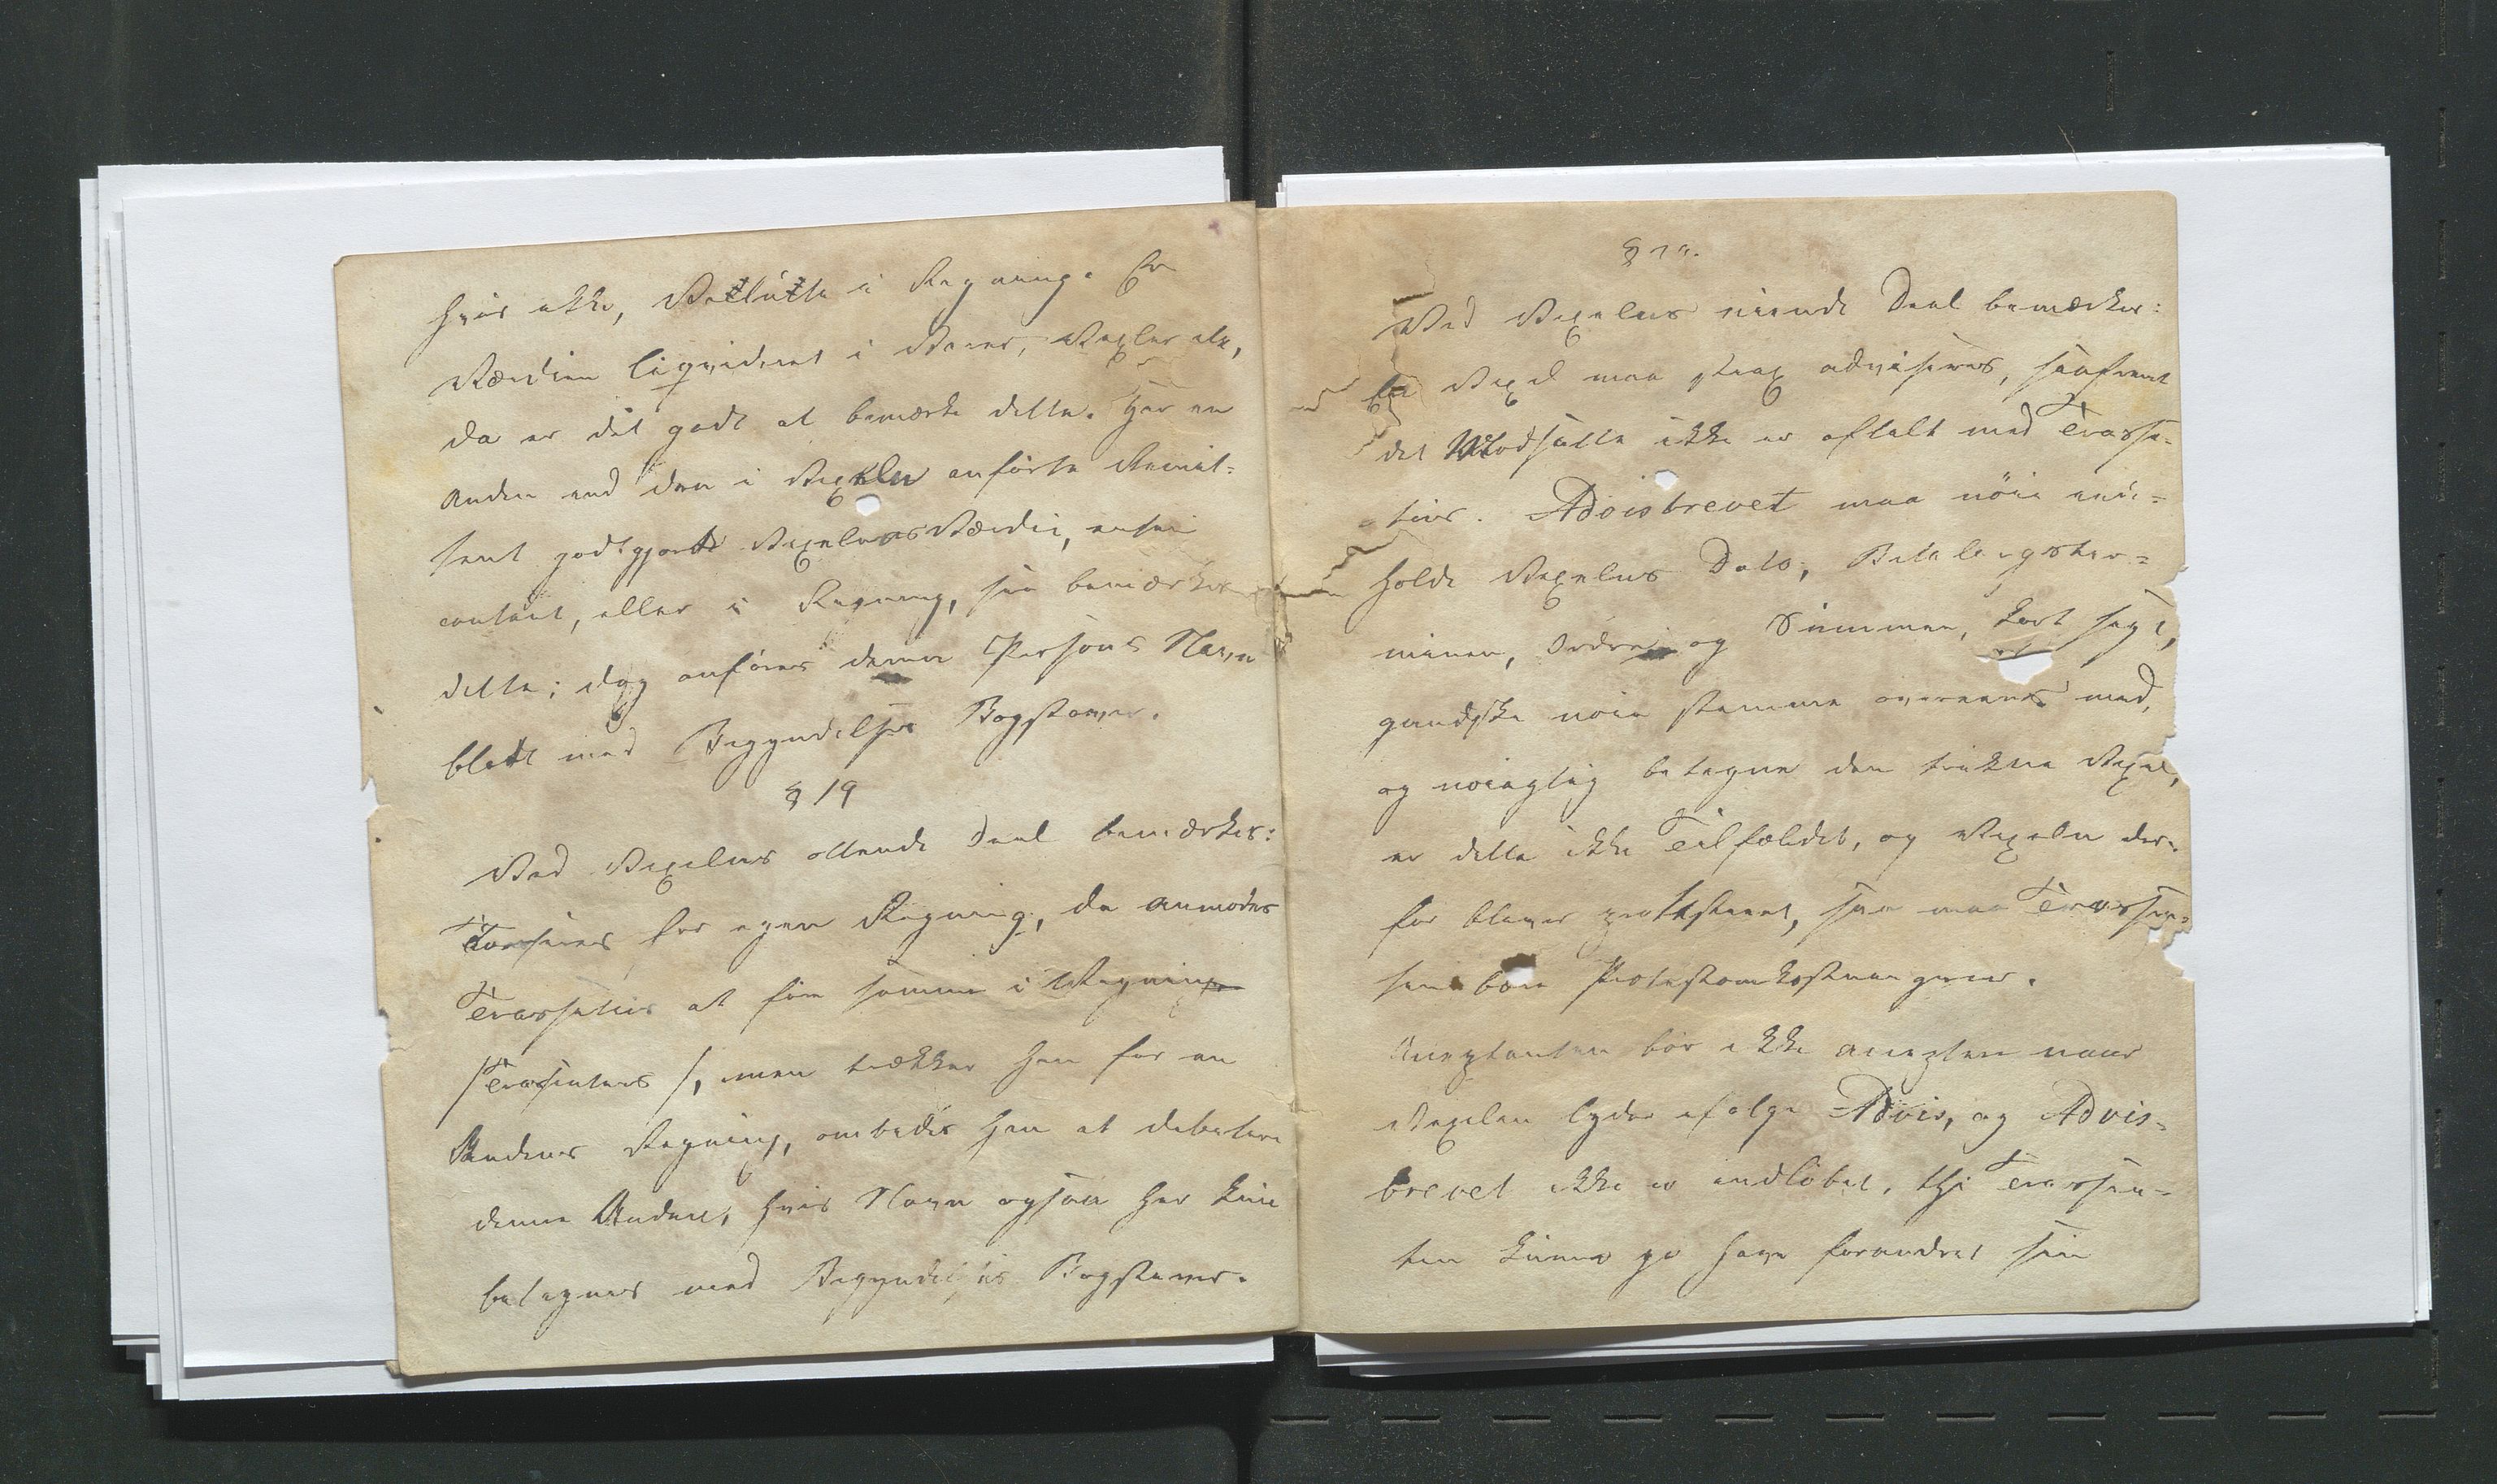 hvis ikke, Valuta i Regning. Er
Værdien liqvideret i Varer, Vexler etc,
da er det godt at bemærke dette. Har en
Anden end den i Vexelen anførte Remit-
tent godtgjort Vexelens Værdie, enten
contant, eller i Regning, saa bemærkes
dette; dog anføres denne Persons Navn
blott med Begyndelses Bogstaver.
§ 19
Ved Vexelens ottende Deel bemærkes:
Trasseres for egen Regning, da anmodes
Trassatus at føre samme i Regning
/Trassentens/, men trækker han for en
Andens Regning, ombedes han at debetere
denne Anden, hvis Navn ogsaa her kun
betegnes med Begyndelses Bogstaver.
§ 20.
Ved Vexelens niende Deel bemærkes:
En Vexel maa strax adviseres, saafremt
det Modsatte ikke er aftalt med Trassa-
tus. Advisbrevet maa nöie inde-
holde Vexelens Dato, Betalingster-
minen, Ordren og Summen, kort sagt,
gandske nöie stemme overeens med,
og nöiagtig betegne den trukne Vexel,
er dette ikke Tilfældet, og Vexelen der-
for bliver protesteret, saa maa Trassen-
ten bære Protestomkostningerne.
Acceptanten bör ikke acceptere naar
Vexelen lyder ifølge Advis, og Advis-
brevet ikke er indløbet, thi Trassen-
ten kunne jo have forandret sin